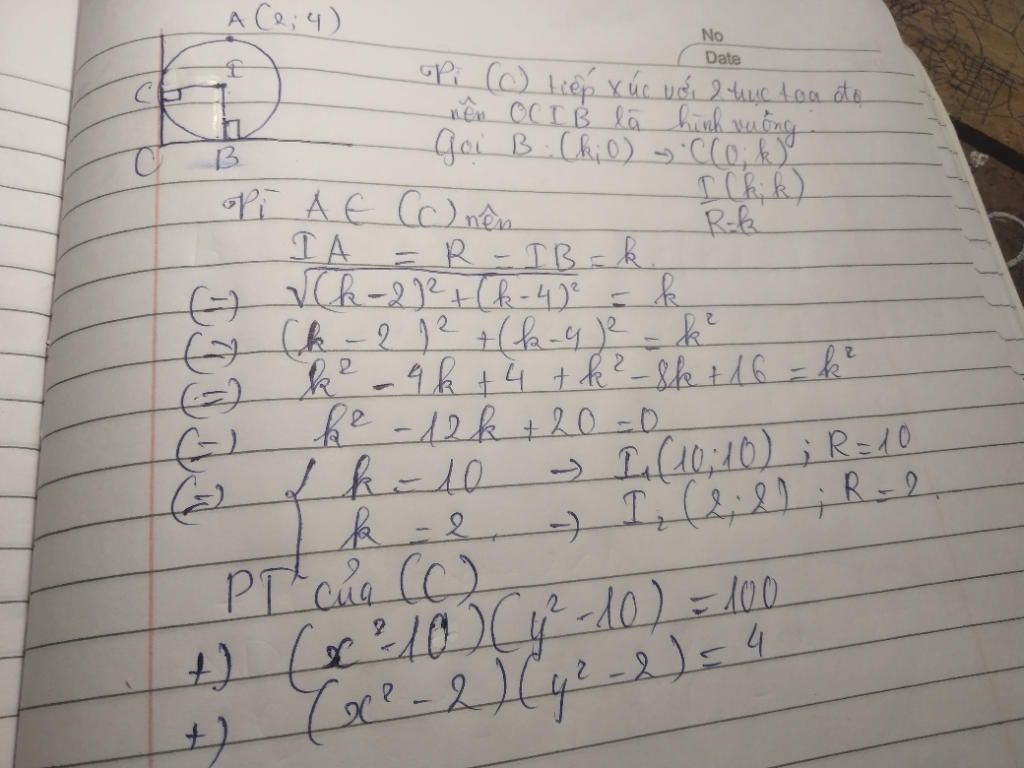 A(2;4)
No
Date
I
C
O
B
Vì (C) tiếp xúc với 2 trục toạ độ
nên OCIB là hình vuông.
Gọi B:(k;0) → C(0;k)
I(k;k)
R=k
Vì A ∈ (C) nên
IA = R = IB = k.
(=) √(k-2)²+(k-4)² = k
(=) (k-2)²+(k-4)² = k²
(=) k² - 4k + 4 + k² - 8k + 16 = k²
(=) k² - 12k + 20 = 0
(=) { k = 10 → I₁(10;10) ; R = 10
k = 2. → I₂(2;2) ; R = 2.
PT của (C)
+) (x²-10)(y²-10) = 100
+) (x²-2)(y²-2) = 4